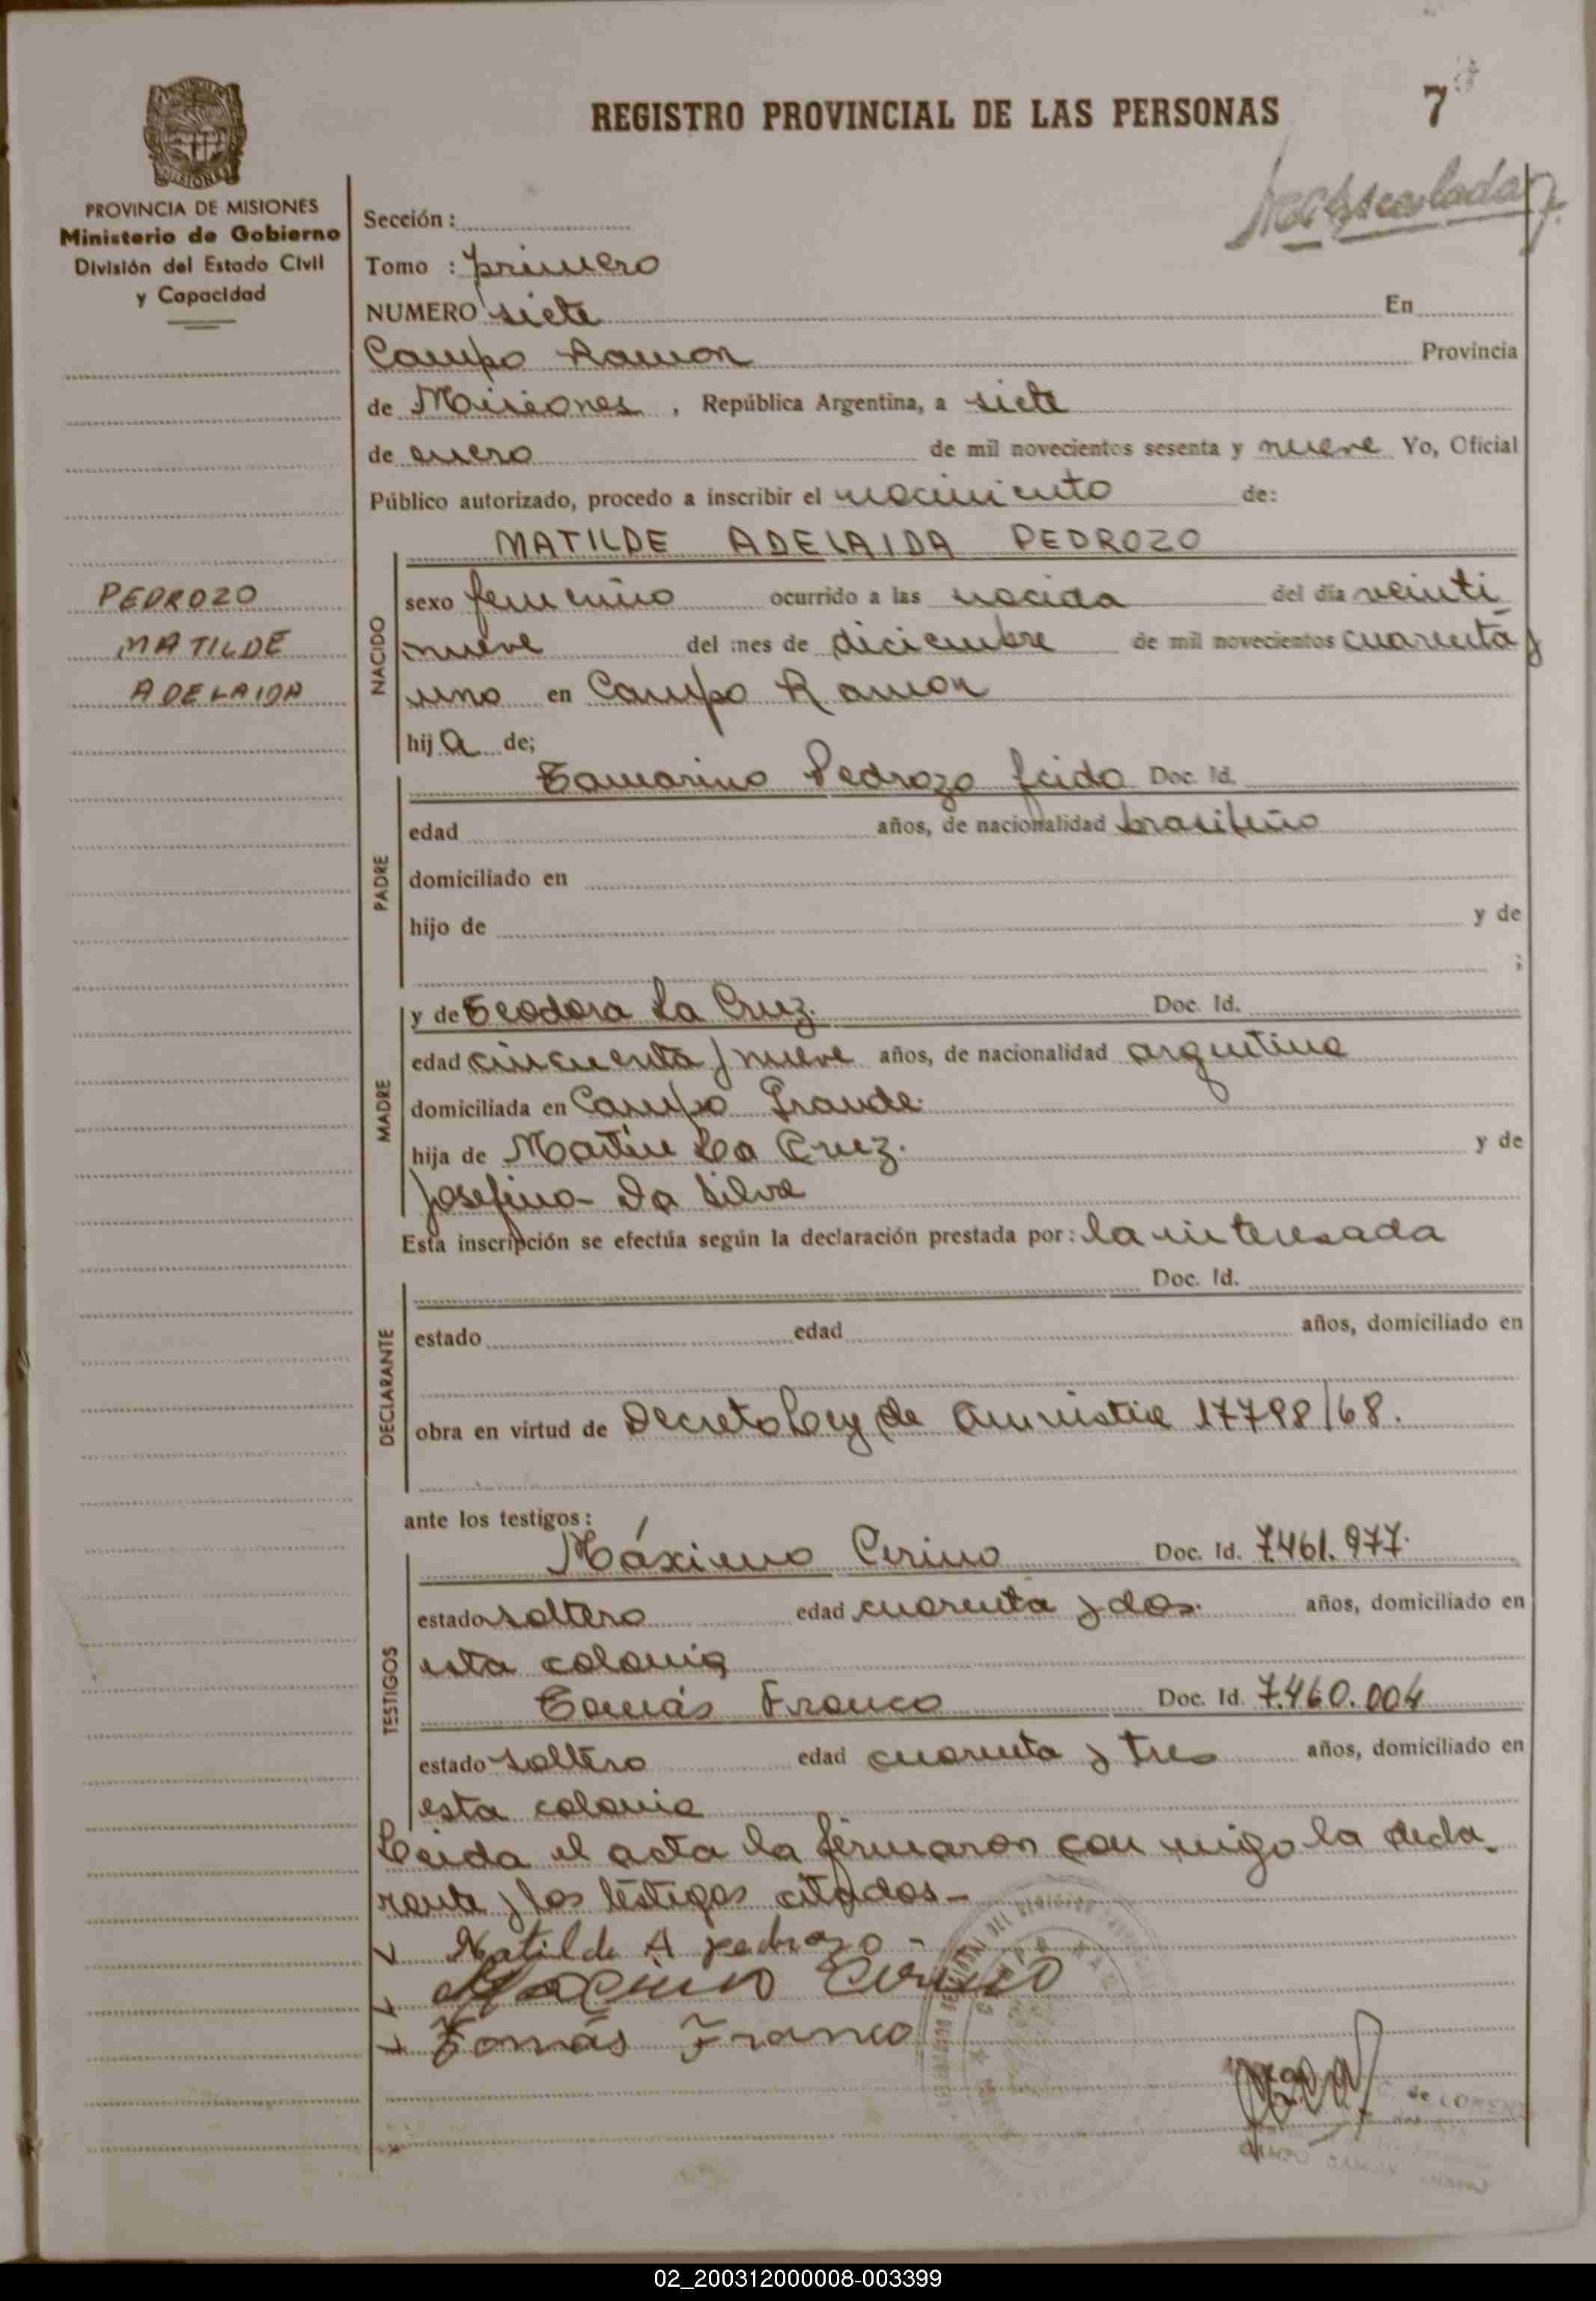 REGISTRO PROVINCIAL DE LAS PERSONAS
7
MISIONES
PROVINCIA DE MISIONES
Ministerio de Gobierno
División del Estado Civil
y Capacidad
Sección :
Tomo : primero
NUMERO siete En
Campo Ramon Provincia
de Misiones, República Argentina, a siete
de enero de mil novecientos sesenta y nueve Yo, Oficial
Público autorizado, procedo a inscribir el nacimiento de:
MATILDE ADELAIDA PEDROZO
PEDROZO
MATILDE
ADELAIDA
NACIDO
sexo femenino ocurrido a las nacida del día veinti
nueve del mes de diciembre de mil novecientos cuarenta y
uno en Campo Ramon
hij a de;
PADRE
Tamarino Pedrozo Doc. Id.
edad años, de nacionalidad brasileño
domiciliado en
hijo de y de
;
MADRE
y de Teodora La Cruz. Doc. Id.
edad cincuenta y nueve años, de nacionalidad argentina
domiciliada en Campo Grande.
hija de Martin La Cruz. y de
Josefina Da Silva
Esta inscripción se efectúa según la declaración prestada por: la interesada
DECLARANTE
Doc. Id.
estado edad años, domiciliado en
obra en virtud de Decreto Ley de Amnistia 17798/68.
ante los testigos:
TESTIGOS
Máximo Cirino Doc. Id. 7.461.977.
estado soltero edad cuarenta y dos. años, domiciliado en
esta colonia
Tomás Franco Doc. Id. 7.460.004
estado soltero edad cuarenta y tres años, domiciliado en
esta colonia
Leida el acta la firmaron con migo la decla_
rante y los testigos citados_
Matilde A pedrozo -
Maximo Cirino
Tomás Franco
02_200312000008-003399